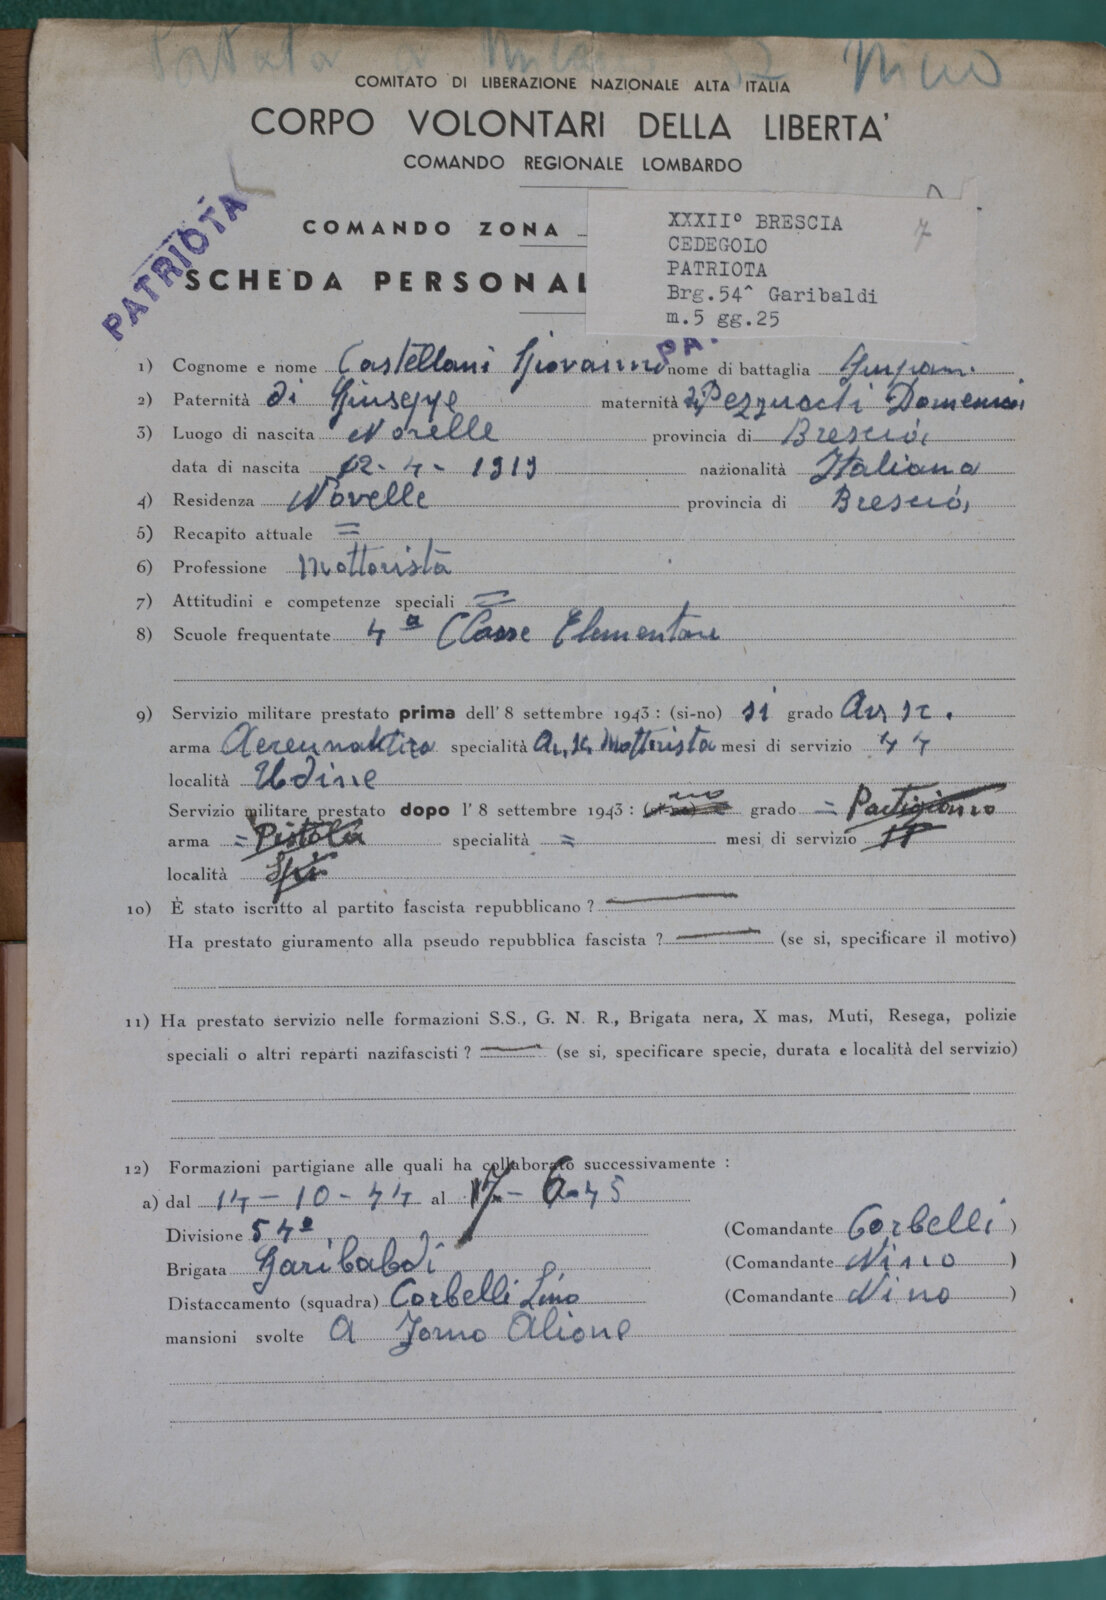 Portata a Milano 32 Nino
COMITATO DI LIBERAZIONE NAZIONALE ALTA ITALIA
CORPO VOLONTARI DELLA LIBERTA'
COMANDO REGIONALE LOMBARDO
PATRIOTA
COMANDO ZONA
SCHEDA PERSONAL
XXXII° BRESCIA 7
CEDEGOLO
PATRIOTA
Brg.54^ Garibaldi
m.5 gg.25
PA.
1) Cognome e nome Castellani Giovanni nome di battaglia
2) Paternità di Giuseppe maternità di Pezzucchi
3) Luogo di nascita Novelle provincia di Brescia
data di nascita 12-4-1919 nazionalità Italiana
4) Residenza Novelle provincia di Brescia
5) Recapito attuale =
6) Professione Mottorista
7) Attitudini e competenze speciali =
8) Scuole frequentate 4ª Classe Elementare
9) Servizio militare prestato prima dell'8 settembre 1943: (si-no) si grado
arma specialità Mottorista mesi di servizio 44
località Udine
Servizio militare prestato dopo l'8 settembre 1943: no grado = Partigiano
arma = Pistola specialità = mesi di servizio
località
10) È stato iscritto al partito fascista repubblicano ?
Ha prestato giuramento alla pseudo repubblica fascista ? (se si, specificare il motivo)
11) Ha prestato servizio nelle formazioni S.S., G. N. R., Brigata nera, X mas, Muti, Resega, polizie
speciali o altri reparti nazifascisti ? (se si, specificare specie, durata e località del servizio)
12) Formazioni partigiane alle quali ha collaborato successivamente :
a) dal 14-10-44 al 17-6-45
Divisione 54ª (Comandante Corbelli )
Brigata Garibabdi (Comandante Nino )
Distaccamento (squadra) Corbelli Lino (Comandante Nino )
mansioni svolte A Jorno Alione